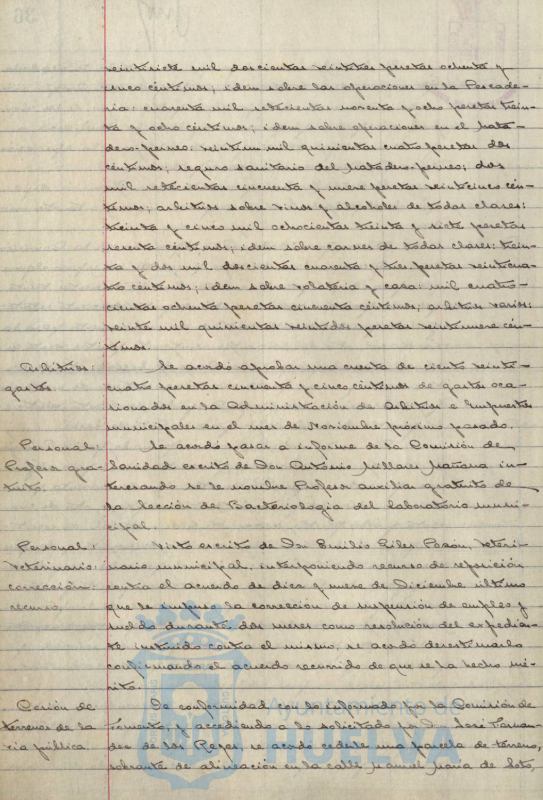 veintisiete mil doscientas veintitres pesetas ochenta y
cinco céntimos; idem sobre las operaciones en la Pescade-
ria: cuarenta mil setecientas noventa y ocho pesetas trein-
ta y ocho céntimos; idem sobre operaciones en el Mata-
dero-perneo: veintiun mil quinientas cuatro pesetas dos
céntimos; seguro sanitario del Matadero-perneo; dos
mil setecientas cincuenta y nueve pesetas veinticinco cén-
timos; arbitrios sobre vinos y alcoholes de todas clases:
treinta y cinco mil ochocientas treinta y siete pesetas
sesenta céntimos; idem sobre carnes de todas clases: trein-
ta y dos mil doscientas cuarenta y tres pesetas veinticua-
tro céntimos; idem sobre volateria y caza: mil cuatro-
cientas ochenta pesetas cincuenta céntimos; arbitrios varios:
veinte mil quinientas veintidos pesetas veintinueve cén-
timos.
Arbitrios: Se acordó aprobar una cuenta de ciento veinti-
gastos cuatro pesetas cincuenta y cinco céntimos de gastos oca-
sionados en la Administración de Arbitrios e Impuestos
municipales en el mes de Noviembre próximo pasado.
Personal: Se acordó pasar a informe de la Comisión de
Profesor gra- Sanidad escrito de Don Antonio Millares Mañana in-
tuito. teresando se le nombre Profesor auxiliar gratuito de
la Sección de Bacteriologia del laboratorio muni-
cipal.
Personal: Visto escrito de Don Emilio Giles Pozón, Veteri-
Veterinario: nario municipal, interponiendo recurso de reposición
corrección: contra el acuerdo de diez y nueve de Diciembre último
recurso, que le impuso la corrección de suspensión de empleo y
sueldo durante dos meses como resolución del expedien-
te instruido contra el mismo, se acordó desestimarlo
confirmando el acuerdo recurrido de que se ha hecho mé-
rito.
Cesión de De conformidad con lo informado por la Comisión de
terrenos de la Fomento, y accediendo a lo solicitado por Don José Fernan-
via pública. dez de los Reyes, se acordó cederle una parcela de terreno,
sobrante de alineación en la calle Manuel Maria de Soto,
Ayuntamiento de
HUELVA